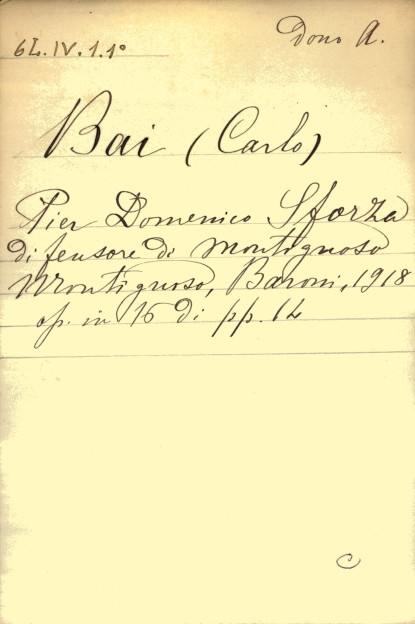 6L.IV.1.1°
Dono A.
Bai (Carlo)
Pier Domenico Sforza
difensore di Montignoso
Montignoso, Baroni, 1918
op. in 16 di pp. 14
C